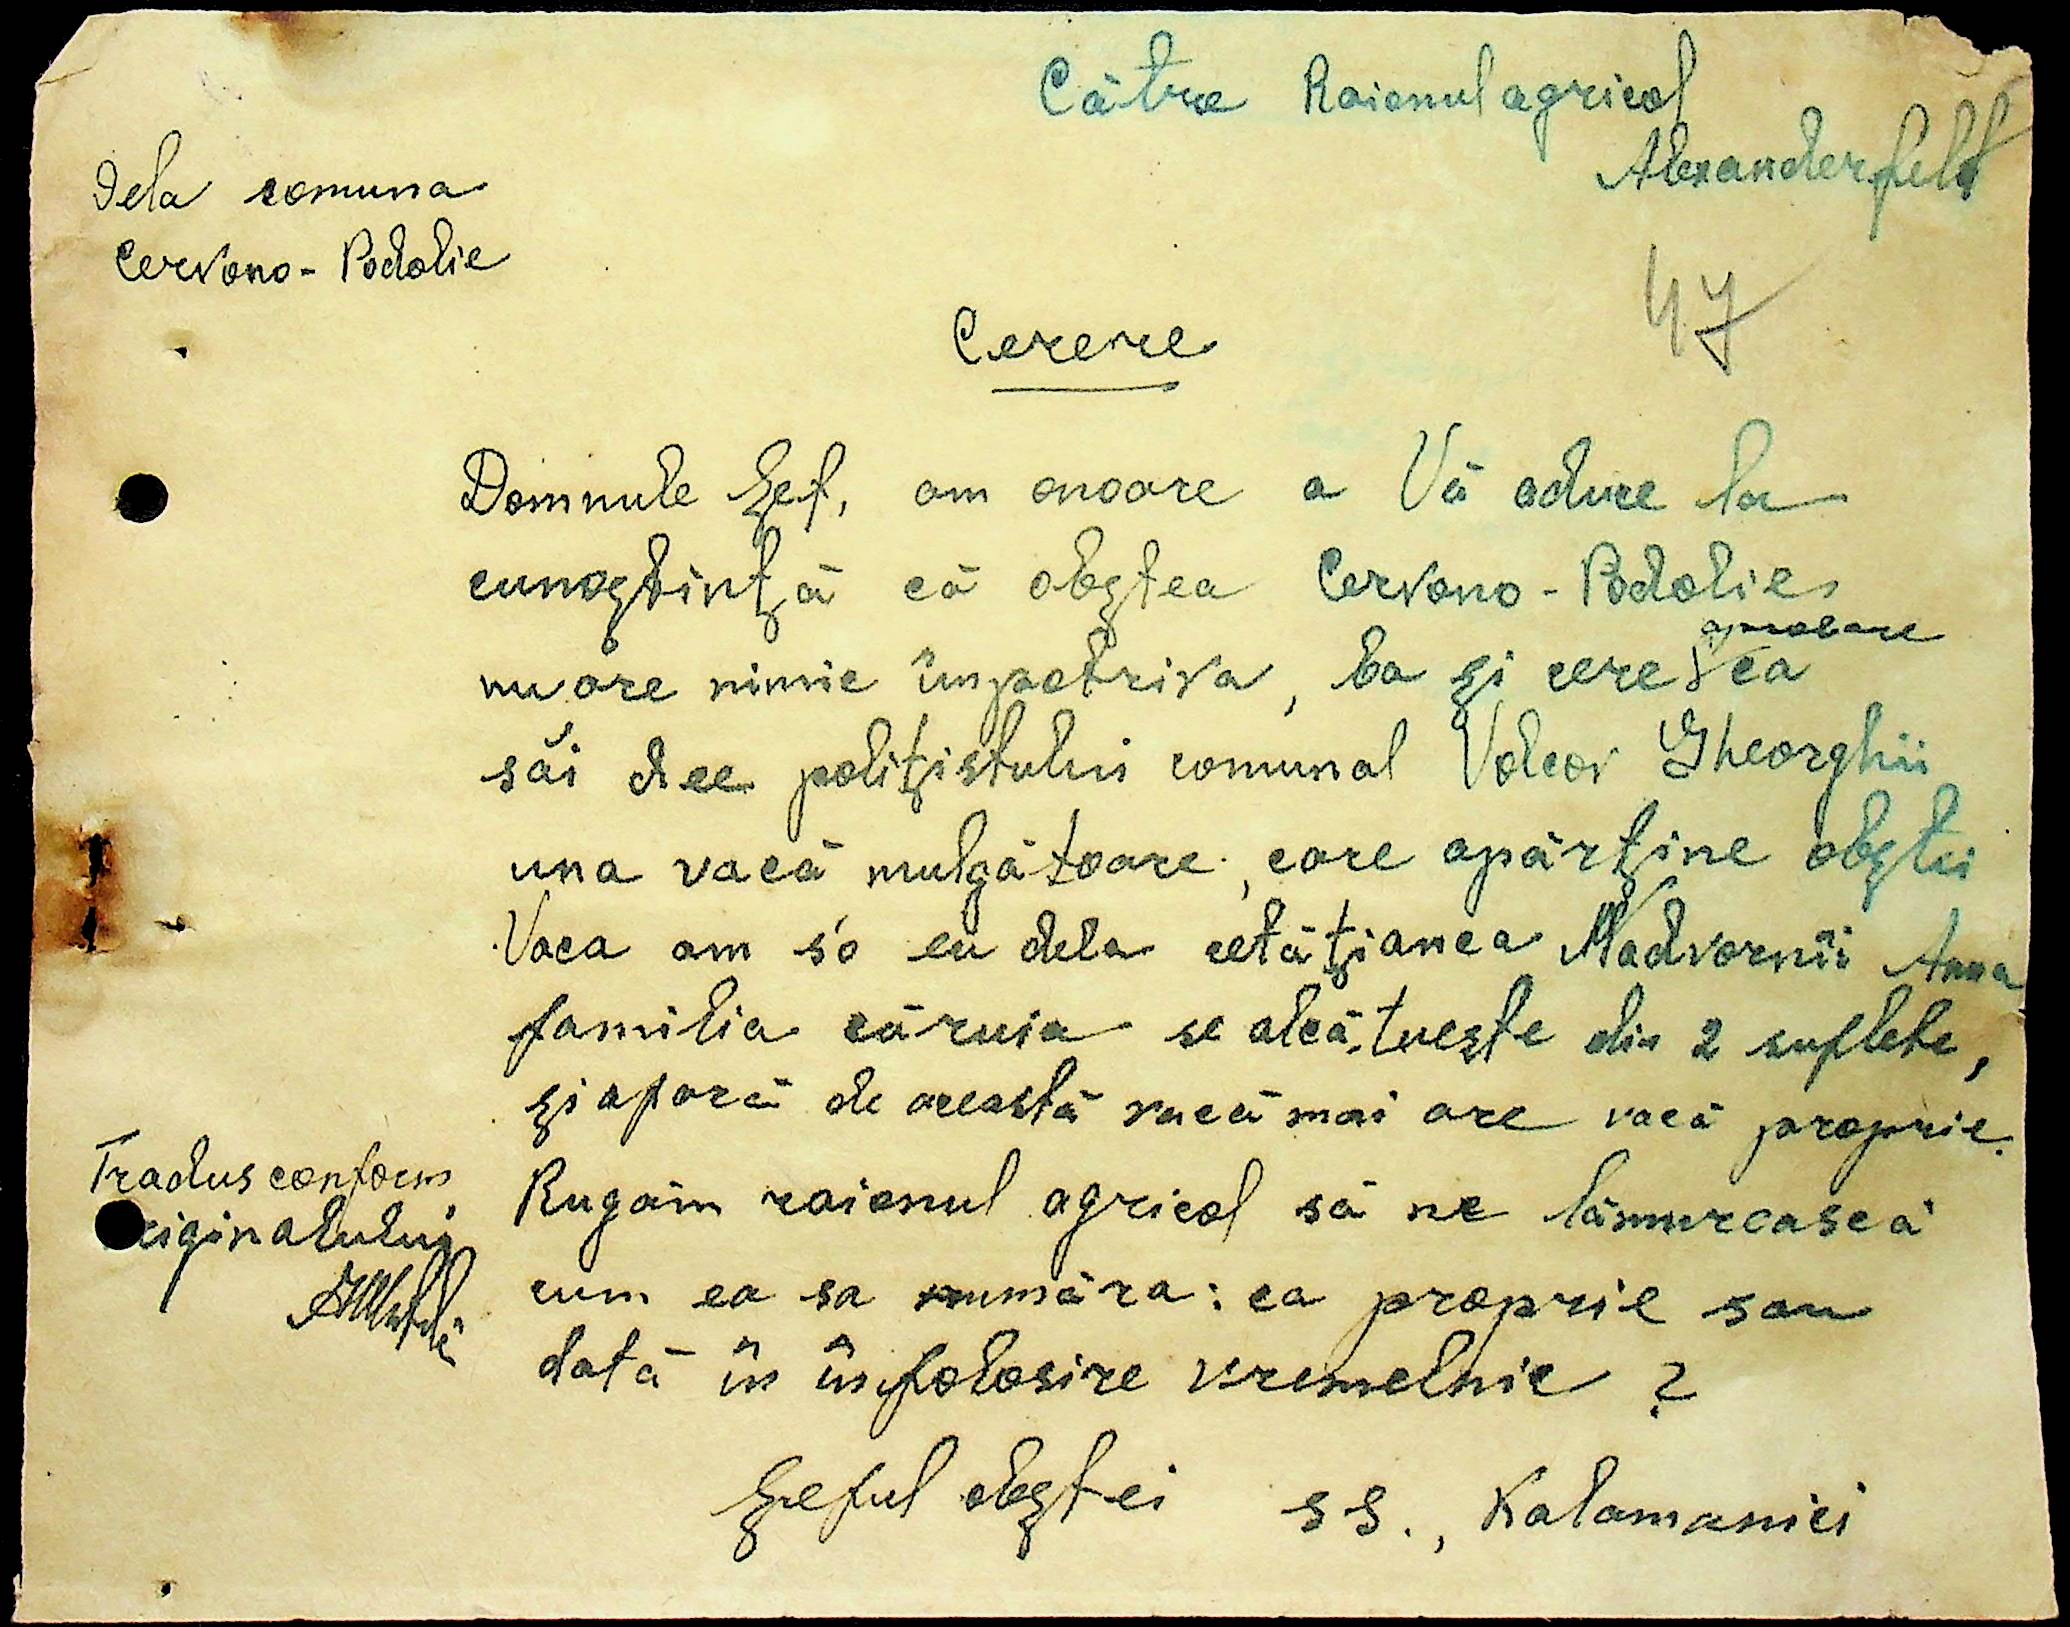 Către Raionul agricol
Alexanderfeld
Dela comuna
Cervono-Podolie
47
Cerere
Domnule Șef, am onoare a Vă aduce la
cunoștință că obștea Cervono-Podolie
aprobare
nu are nimic împotriva, ba și cere ca
săi dee polițistului comunal Volcov Gheorghii
una vacă mulgătoare, care apărține obștii
Vaca am s'o eu dela cetățianca Nadvornîi Anna
familia căruia se alcătuește din 2 suflete,
și aforă de această vacă mai are vacă proprie.
Rugăm raionul agricol să ne lămurească
cum ea sa număra: ca proprie sau
dată în înfolosire vremelnic?
Șeful obștei ss., Kalamanici
Tradus conform
originalului